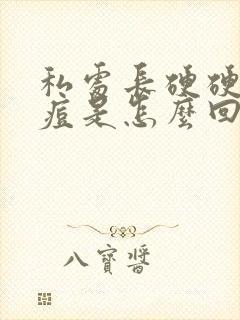 私處長硬硬
痘是怎麼回
八寶醬